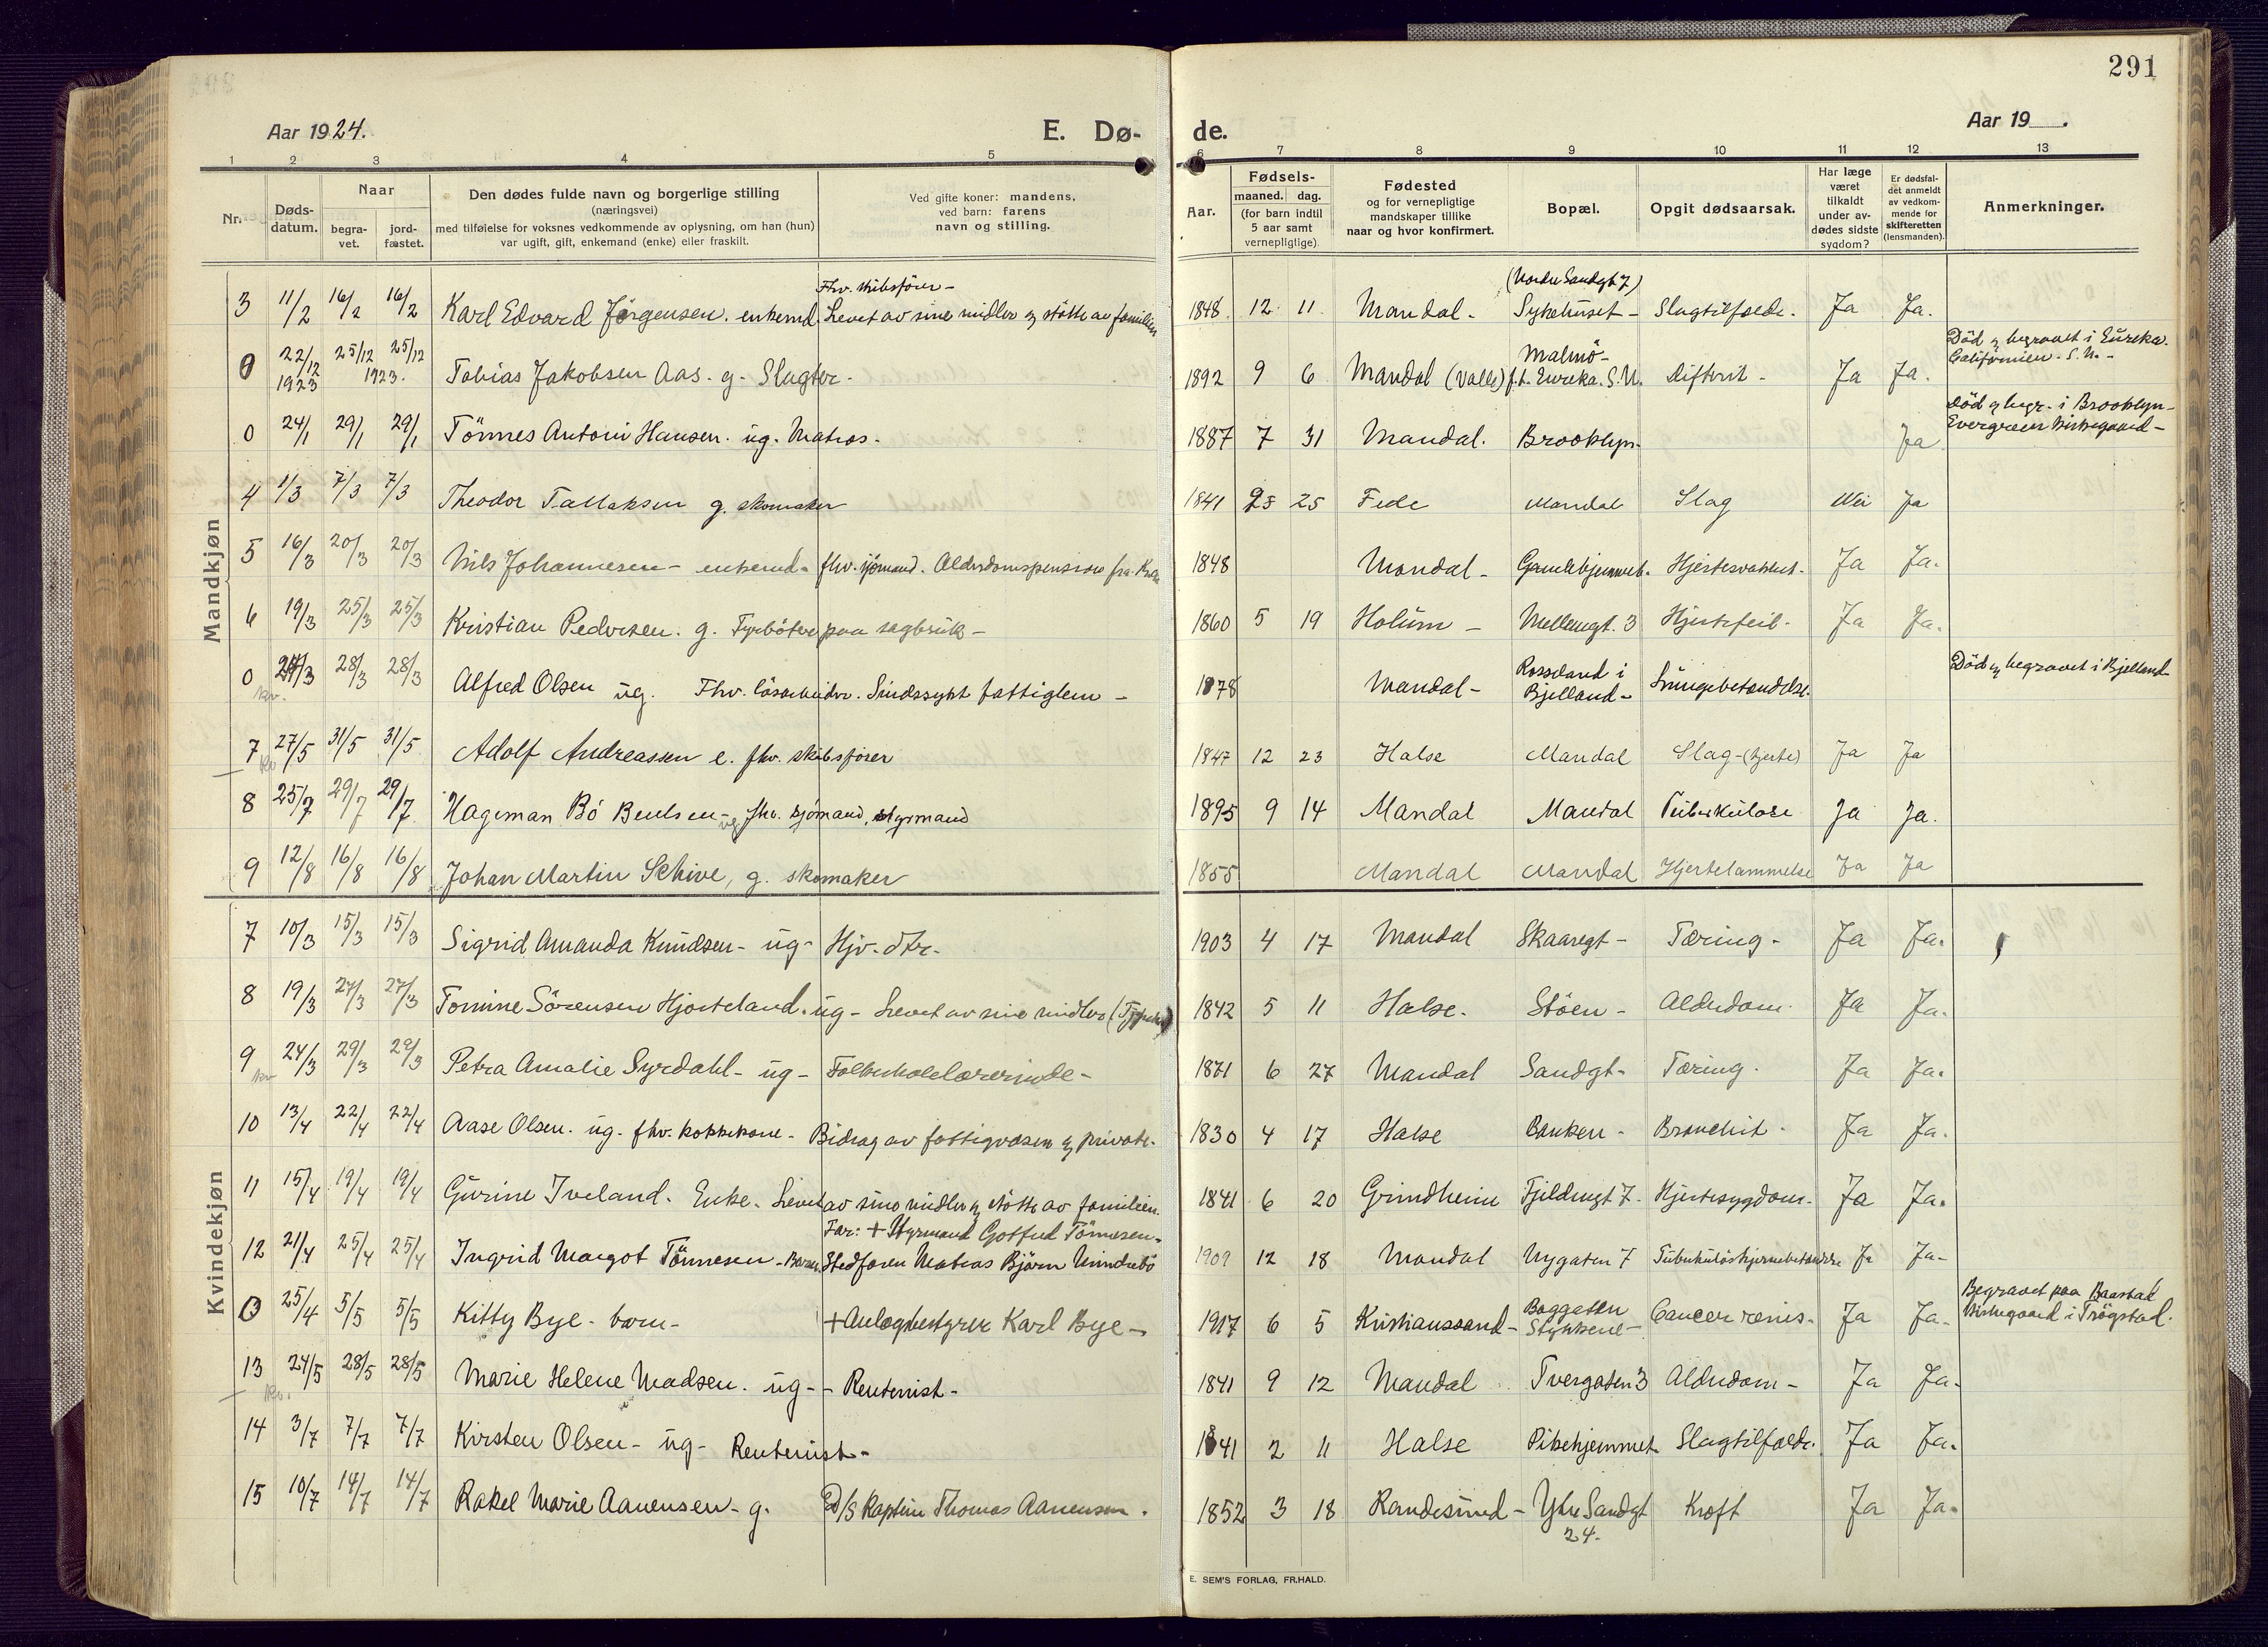 291
Aar 1924.
E. Dø-
de.
Aar 19 .
1 2 3 4 5 6 7 8 9 10 11 12 13
Nr.
Døds-
datum.
Naar
begra-
vet.
jord-
fæstet.
Den dødes fulde navn og borgerlige stilling
(næringsvei)
med tilføielse for voksnes vedkommende av oplysning, om han (hun)
var ugift, gift, enkemand (enke) eller fraskilt.
Ved gifte koner: mandens,
ved barn: farens
navn og stilling.
Aar.
Fødsels-
maaned. dag.
(for barn indtil
5 aar samt
vernepligtige).
Fødested
og for vernepligtige
mandskaper tillike
naar og hvor konfirmert.
Bopæl.
Opgit dødsaarsak.
Har læge
været
tilkaldt
under av-
dødes sidste
sygdom?
Er dødsfal-
det anmeldt
av vedkom-
mende for
skifteretten
(lensmanden).
Anmerkninger.
Mandkjøn
Fhv. skibsförer - (Nordre Sandgt 7)
3 11/2 16/2 16/2 Karl Edvard Jørgensen. enkemd. Levet av sine midler og stötte av familien 1848 12 11 Mandal - Sykehuset - Slagtilfælde. Ja Ja.
0 22/12 1923 25/12 25/12 1923. Tobias Jakobsen Aas. g. Slagter. 1892 9 6 Mandal (Valle) Malmö - f.t. Eureka. S.U. Difterit - Ja Ja. Död og begravet i Eureka.
Californien. S.U. -
0 24/1 29/1 29/1 Tönnes Antoni Hansen. ug. Matros. 1887 7 31 Mandal. Brooklyn. Ja Död og begr. i Brooklyn -
Evergreen kirkegaard -
4 1/3 7/3 7/3 Theodor Tallaksen g. skomaker 1841 25 Fede Mandal Slag Nei Ja
5 16/3 20/3 20/3 Nils Johannesen - enkemd - fhv. sjömand. Alderdomspension fra 1848 Mandal - Gamlehjemmet. Hjertesvakhet. Ja Ja.
6 19/3 25/3 25/3 Kristian Pedersen. g. Fyrböter paa sagbruk - 1860 5 19 Holum - Mellemgt. 3 Hjertefeil. Ja Ja.
0 28/3 28/3 Alfred Olsen ug. Fhv. lösarbeider. Sindssykt fattiglem - 1878 Mandal - Rosseland i
Bjelland - Lungebetændelse. Död og begravet i Bjelland
7 27/5 31/5 31/5 Adolf Andreassen e. fhv. skibsfører 1847 12 23 Halse Mandal Slag - (hjerte) Ja Ja
8 25/7 29/7 29/7 Hageman Bö Bentsen ug fhv. sjömand, styrmand 1895 9 14 Mandal Mandal Tuberkulose Ja Ja.
9 12/8 16/8 16/8 Johan Martin Schive, g. skomaker 1855 Mandal Mandal Hjertelammelse Ja Ja
Kvindekjøn
7 10/3 15/3 15/3 Sigrid Amanda Knudsen - ug - Hjv. dtr. 1903 4 17 Mandal Skaaregt - Tæring - Ja Ja.
8 19/3 27/3 27/3 Tomine Sörensen Hjorteland. ug - Levet av sine midler 1842 5 11 Halse. Stöen - Alderdom. Ja Ja.
9 24/3 29/3 29/3 Petra Amalie Syrdahl - ug - Folkeskolelærerinde - 1871 6 27 Mandal Sandgt - Tæring. Ja Ja.
10 13/4 22/4 22/4 Aase Olsen. ug. fhv. kokkekone - Bidrag av fattigvæsen og private. 1830 4 17 Halse Banken - Bronchit. Ja Ja.
11 15/4 19/4 19/4 Gurine Iveland. Enke. Levet av sine midler og stötte av familien. 1841 6 20 Grindheim Fjeldmgt 7. Hjertesygdom. Ja Ja.
Far: + Styrmand Gotfred Tönnesen.
12 21/4 25/4 25/4 Ingrid Margot Tönnesen - Barn. Stedfaren Matros Björn Mindrebö 1909 12 18 Mandal Nygaten 7 Tuberkulös hjernebetændelse Ja Ja -
0 25/4 5/5 5/5 Kitty Bye - barn - + Anlægbestyrer Karl Bye - 1917 6 5 Kristianssand - Baggatten
Stykkene - Cancer renis - Ja Ja - Begravet paa Baastad
kirkegaard i Trögstad.
13 24/5 28/5 28/5 Marie Helene Madsen. ug - - Rentenist - 1841 9 12 Mandal Tvergaten 3 Alderdom - Ja Ja -
14 3/7 7/7 7/7 Kirsten Olsen - ug - Rentenist - 1841 2 11 Halse Pikehjemmet Slagtilfælde. Ja Ja.
15 10/7 14/7 14/7 Rakel Marie Aanensen - g. D/S Kaptein Thomas Aanensen. 1852 3 18 Randesund - Ytre Sandgt
24. Kræft Ja Ja.
E. SEM'S FORLAG, FR.HALD.